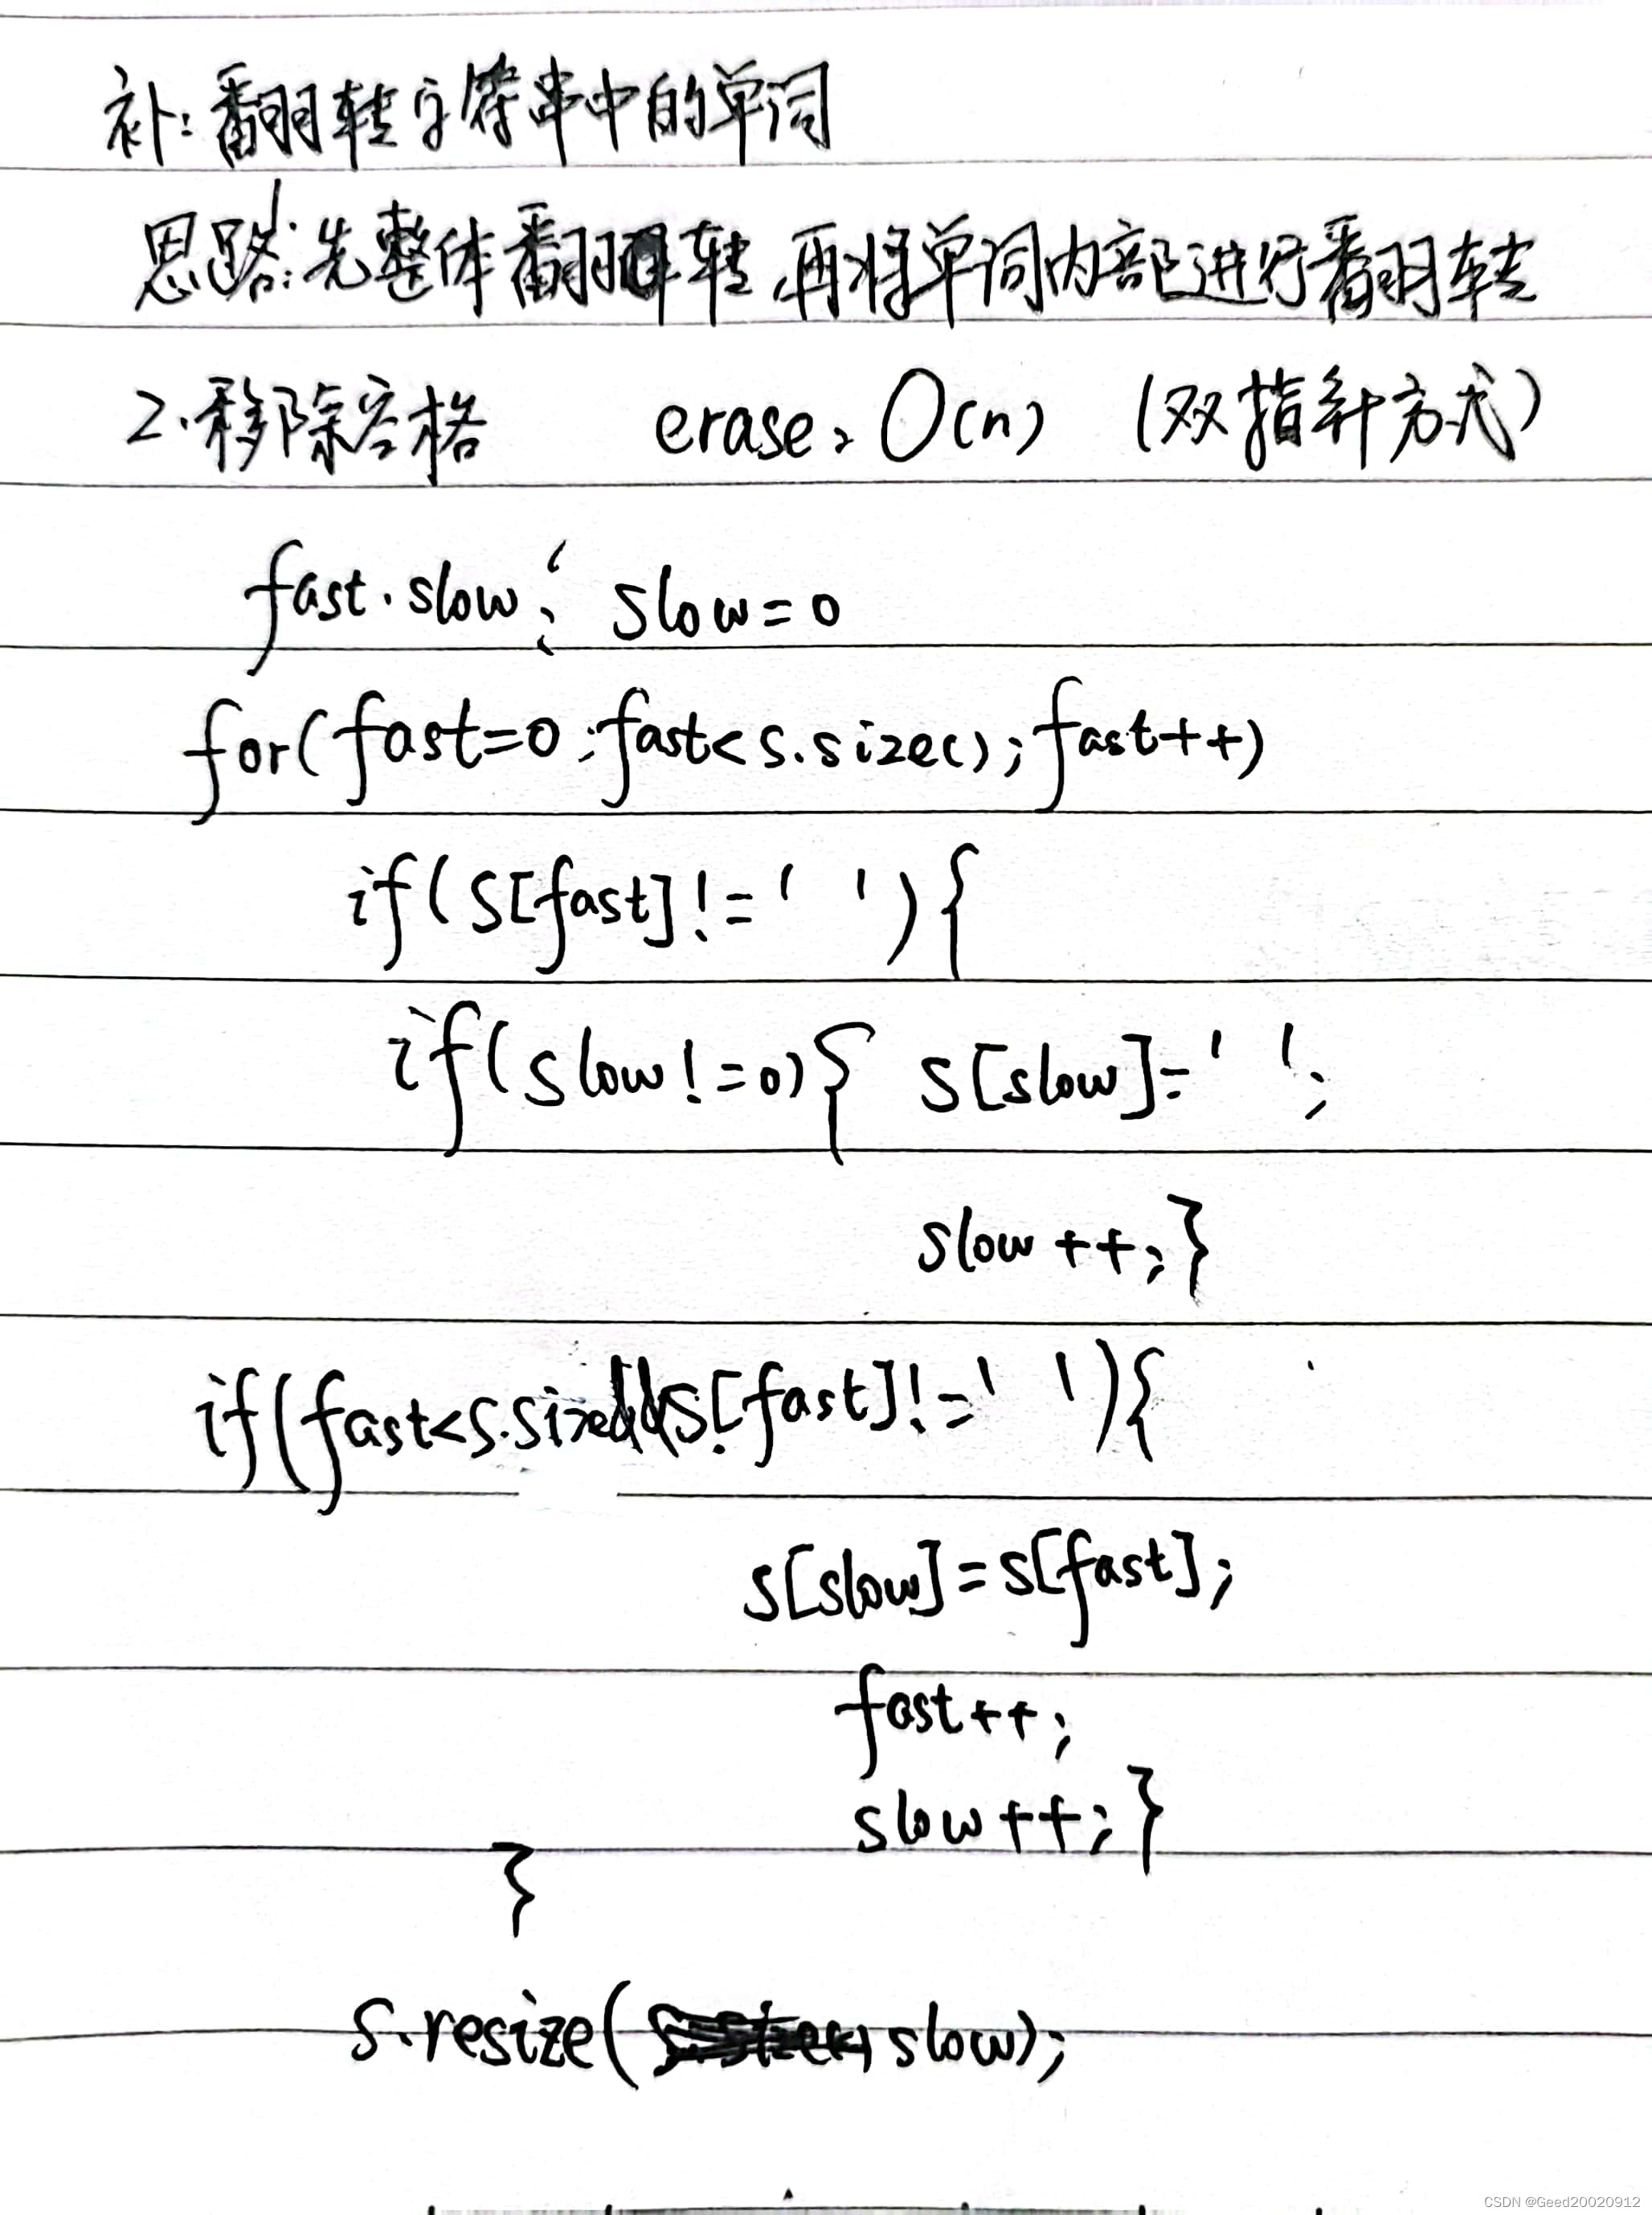 补:翻转字符串中的单词
思路:先整体翻转,再将单词内部进行翻转
2.移除空格 erase, O(n) (双指针方式)
fast.slow; slow=0
for(fast=0;fast<s.size();fast++)
if(s[fast]!=' '){
if(slow!=0){ s[slow]=' ';
slow++;}
if(fast<s.size s[fast]!=' '){
s[slow]=s[fast];
fast++;
slow++;}
}
s.resize(slow);
CSDN @Geed20020912